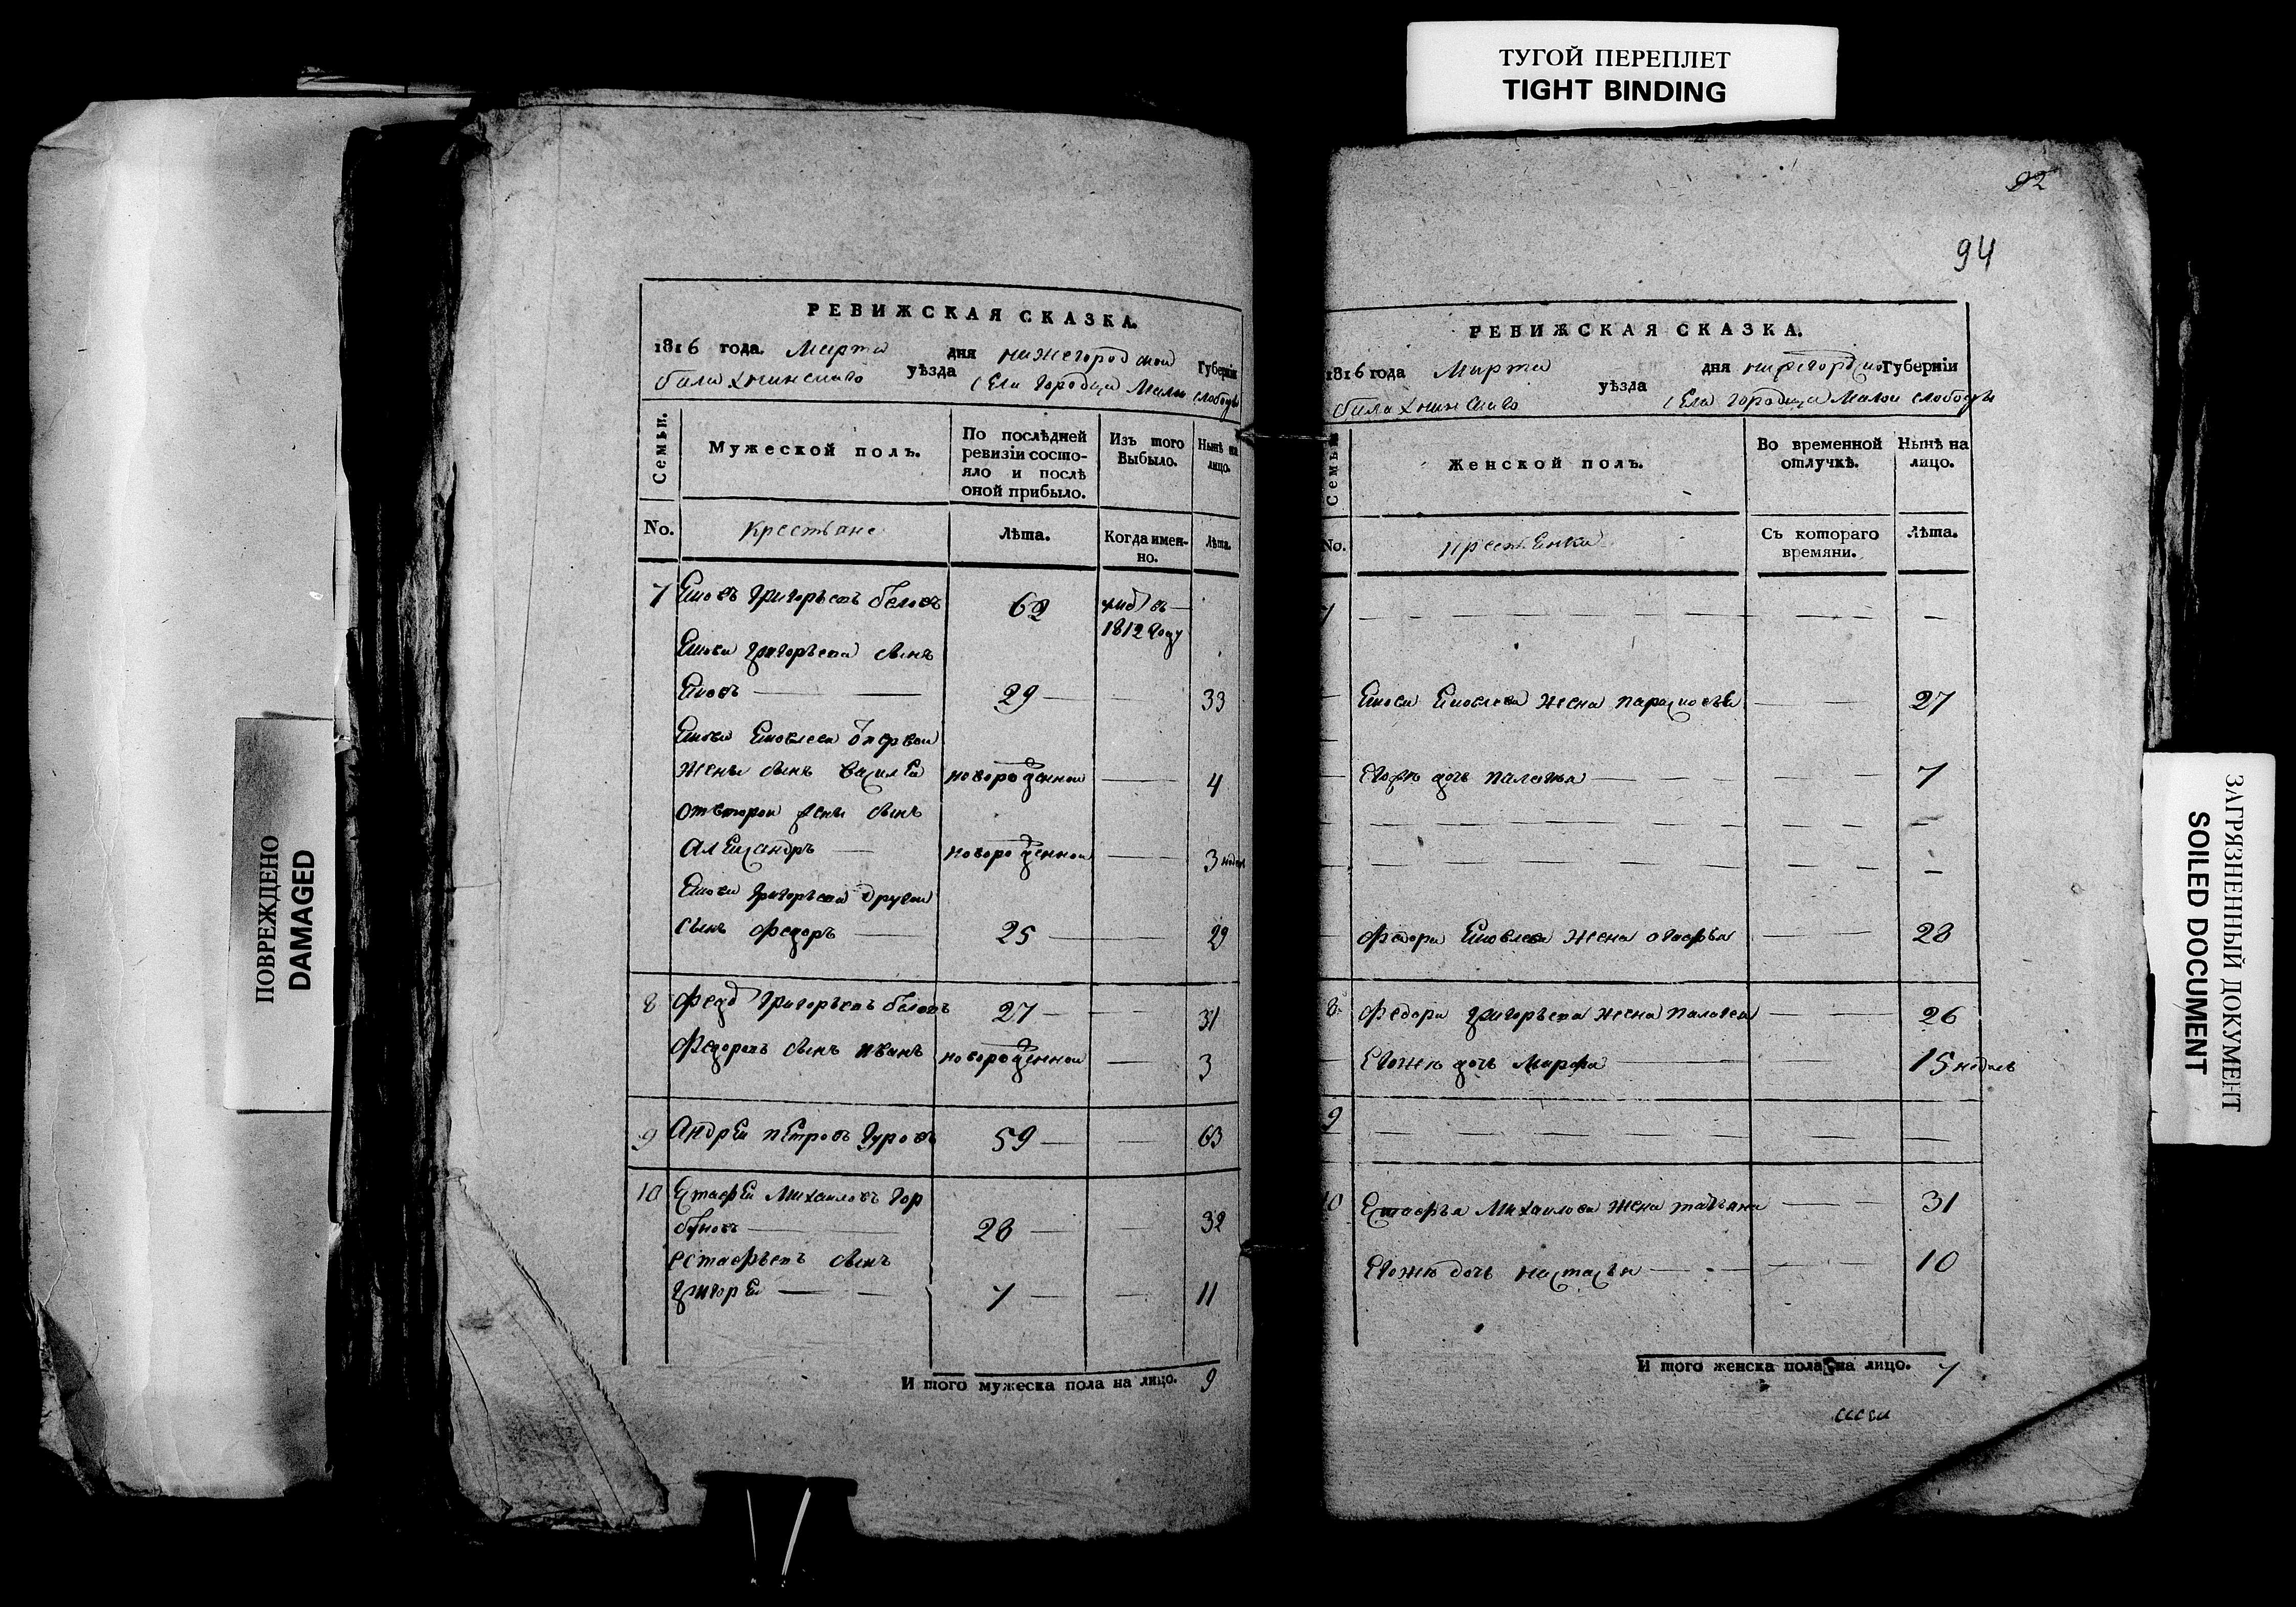 ТУГОЙ ПЕРЕПЛЕТ
TIGHT BINDING
ПОВРЕЖДЕНО
DAMAGED
РЕВИЖСКАЯ СКАЗКА.
1816 года. Марта дня нижегородской Губерніи
балахнинскаго уѣзда села Городца Малой слободы
Семьи.
Мужеской полъ.
По послѣдней
ревизіи состо-
яло и послѣ
оной прибыло.
Изъ того
Выбыло.
Нынѣ на
лицо.
No.
Крестьяне
Лѣта.
Когда имен-
но.
Лѣта.
7 Яковъ Григорьевъ бѣловъ 62 въ
1812 году
Якова Григорьева сынъ
Яковъ 29 33
Якова Яковлева первой
жены сынъ василей новорожденной 4
отвторой жены сынъ
Александръ новорожденной 3 недел
Якова Григорьева другой
сынъ Федоръ 25 29
8 Федоръ Григорьевъ бѣловъ 27 31
Федоровъ сынъ иванъ новорожденной 3
9 Андрей петровъ Гуровъ 59 63
10 Естафей Михаиловъ Гор
буновъ 28 32
естафьевъ сынъ
Григорей 7 11
И того мужеска пола на лицо. 9
92
94
РЕВИЖСКАЯ СКАЗКА.
1816 года Марта дня нижегородской Губерніи
балахнинскаго уѣзда села Городца Малой слободы
Семьи
Женской полъ.
Во временной
отлучкѣ.
Нынѣ на
лицо.
No.
крестьянки
Съ котораго
времяни.
Лѣта.
7
Якова Яковлева жена парасковья 27
Евожъ дочь палагея 7
Федора Яковлева жена агафья 28
8 Федора Григорьева жена палагея 26
Евоже дочь Марфа 15 недель
9
10 Естафья Михаилова жена татьяна 31
Евоже дочь настасья 10
И того женска пола на лицо. 7
ЗАГРЯЗНЕННЫЙ ДОКУМЕНТ
SOILED DOCUMENT